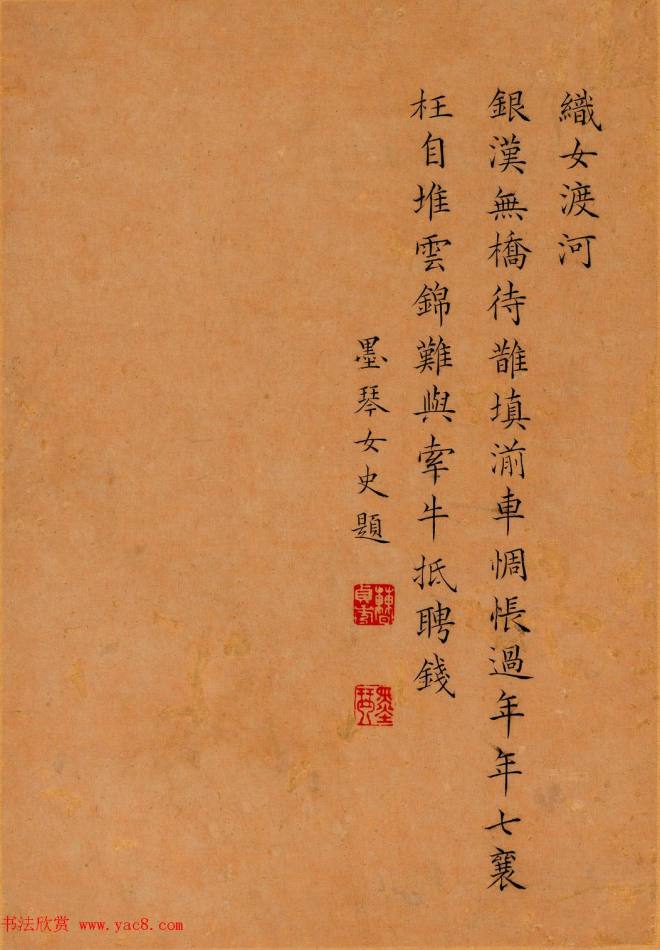 織女渡河
銀漢無橋待䧿填湔車惆悵過年年七襄
枉自堆雲錦難與牽牛抵聘錢
墨琴女史題
曹貞秀
墨琴
书法欣赏 www.yac8.com